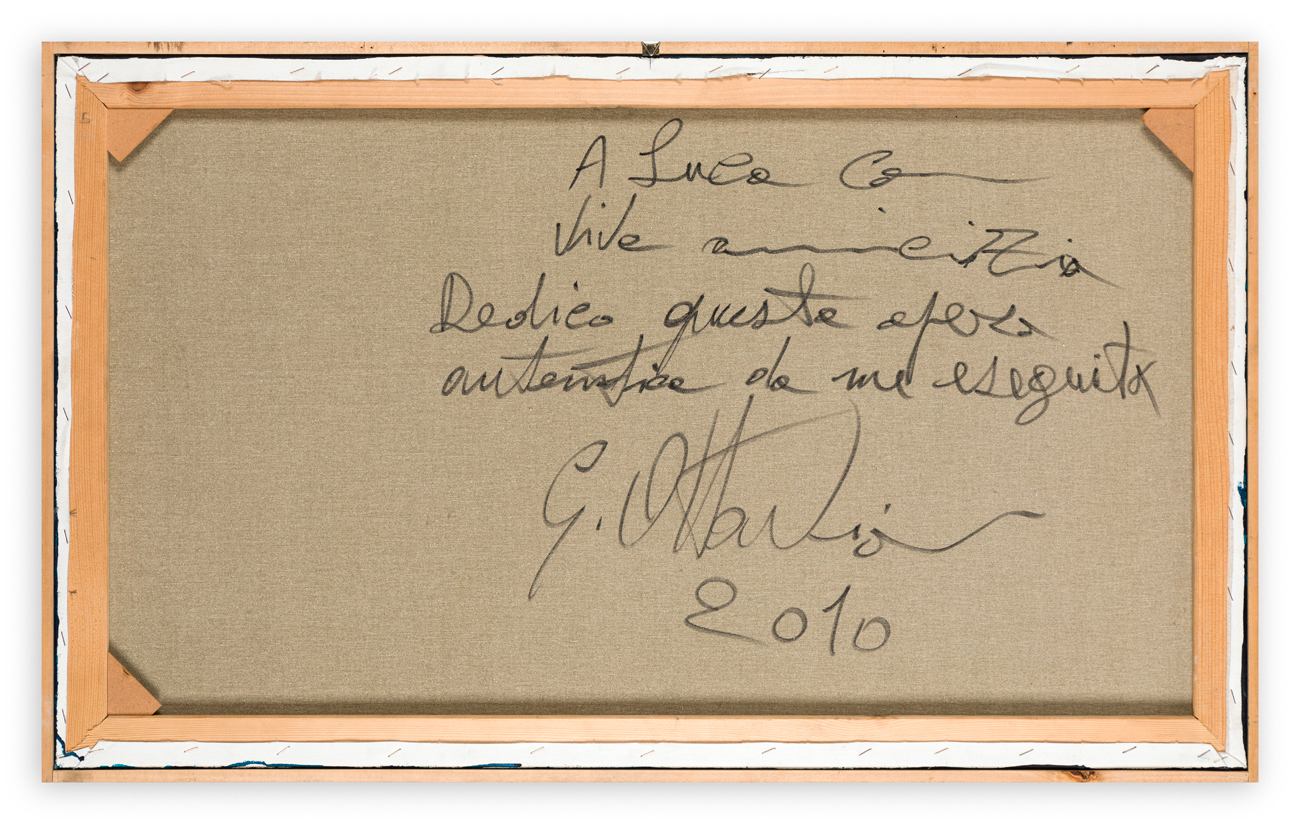 A Luca con
viva amicizia
Dedico questa opera
autentica da me eseguita
G. Ottavia
2010